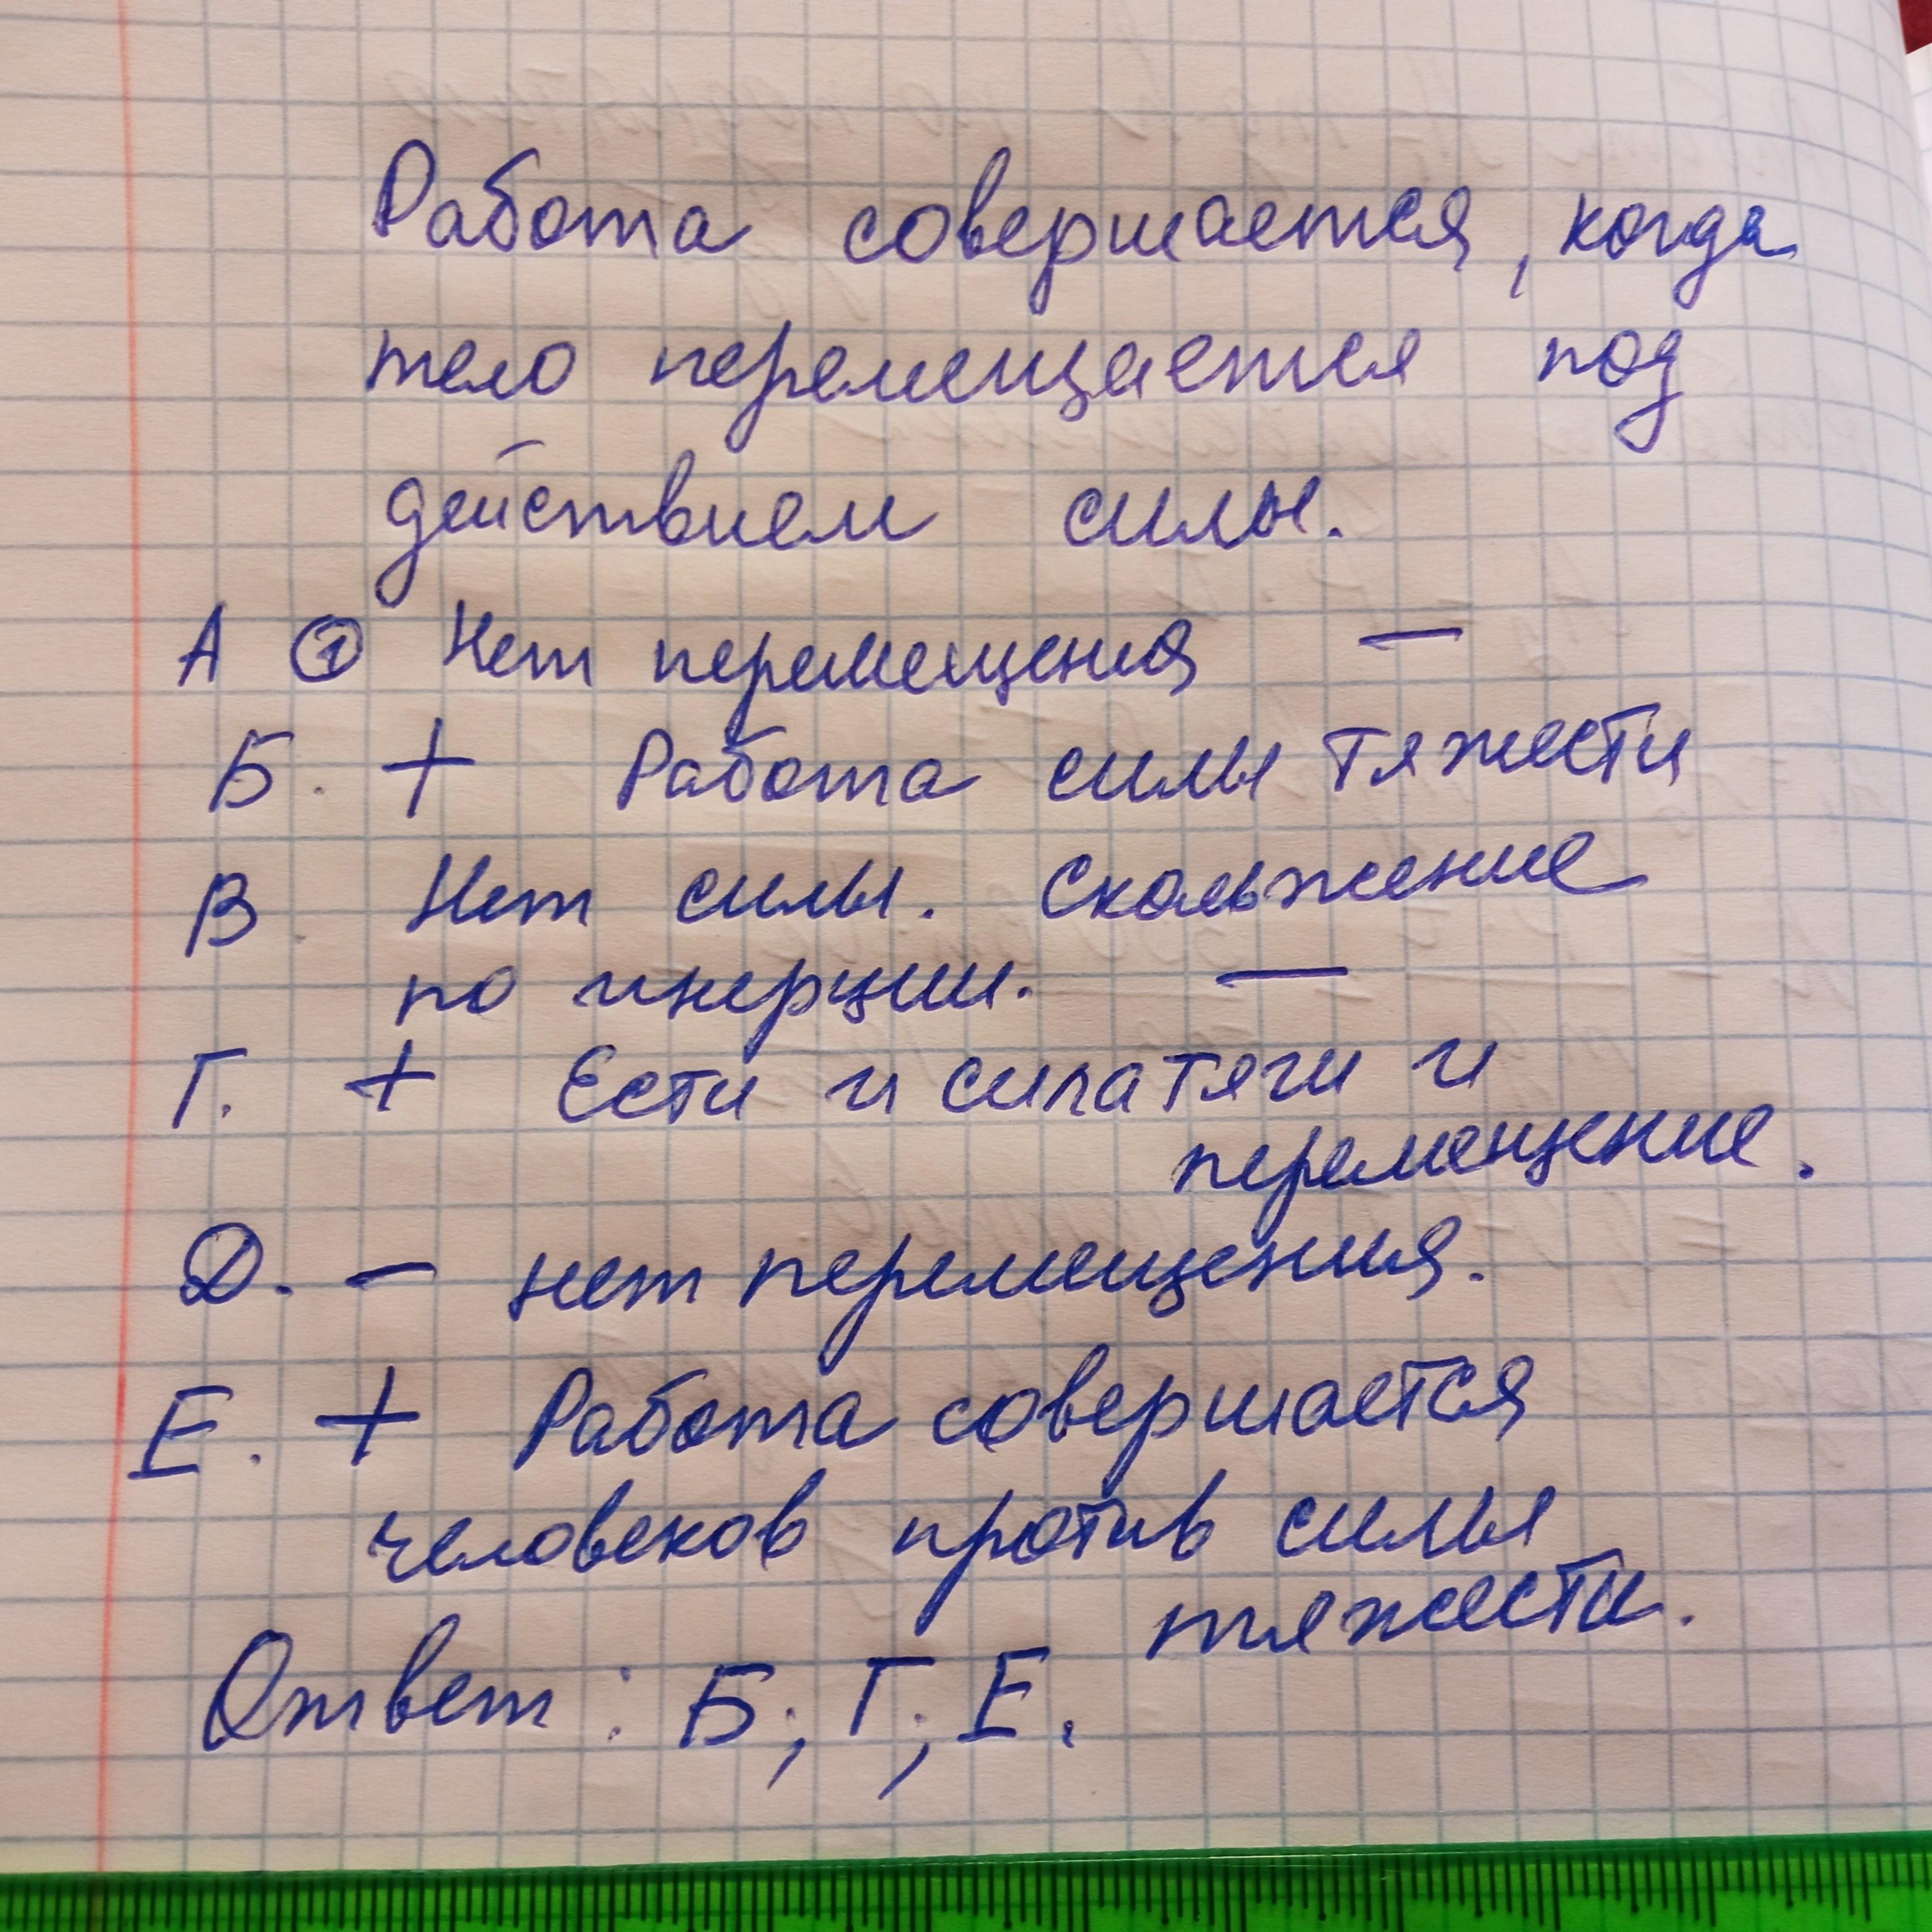 Работа совершается, когда
тело перемещается под
действием силы.
А ① Нет перемещения —
Б. + Работа силы тяжести
В Нет силы. Скольжение
по инерции. —
Г. + Есть и сила тяги и
перемещение.
Д. — нет перемещения.
Е. + Работа совершается
человеков против силы
тяжести.
Ответ: Б; Г; Е.